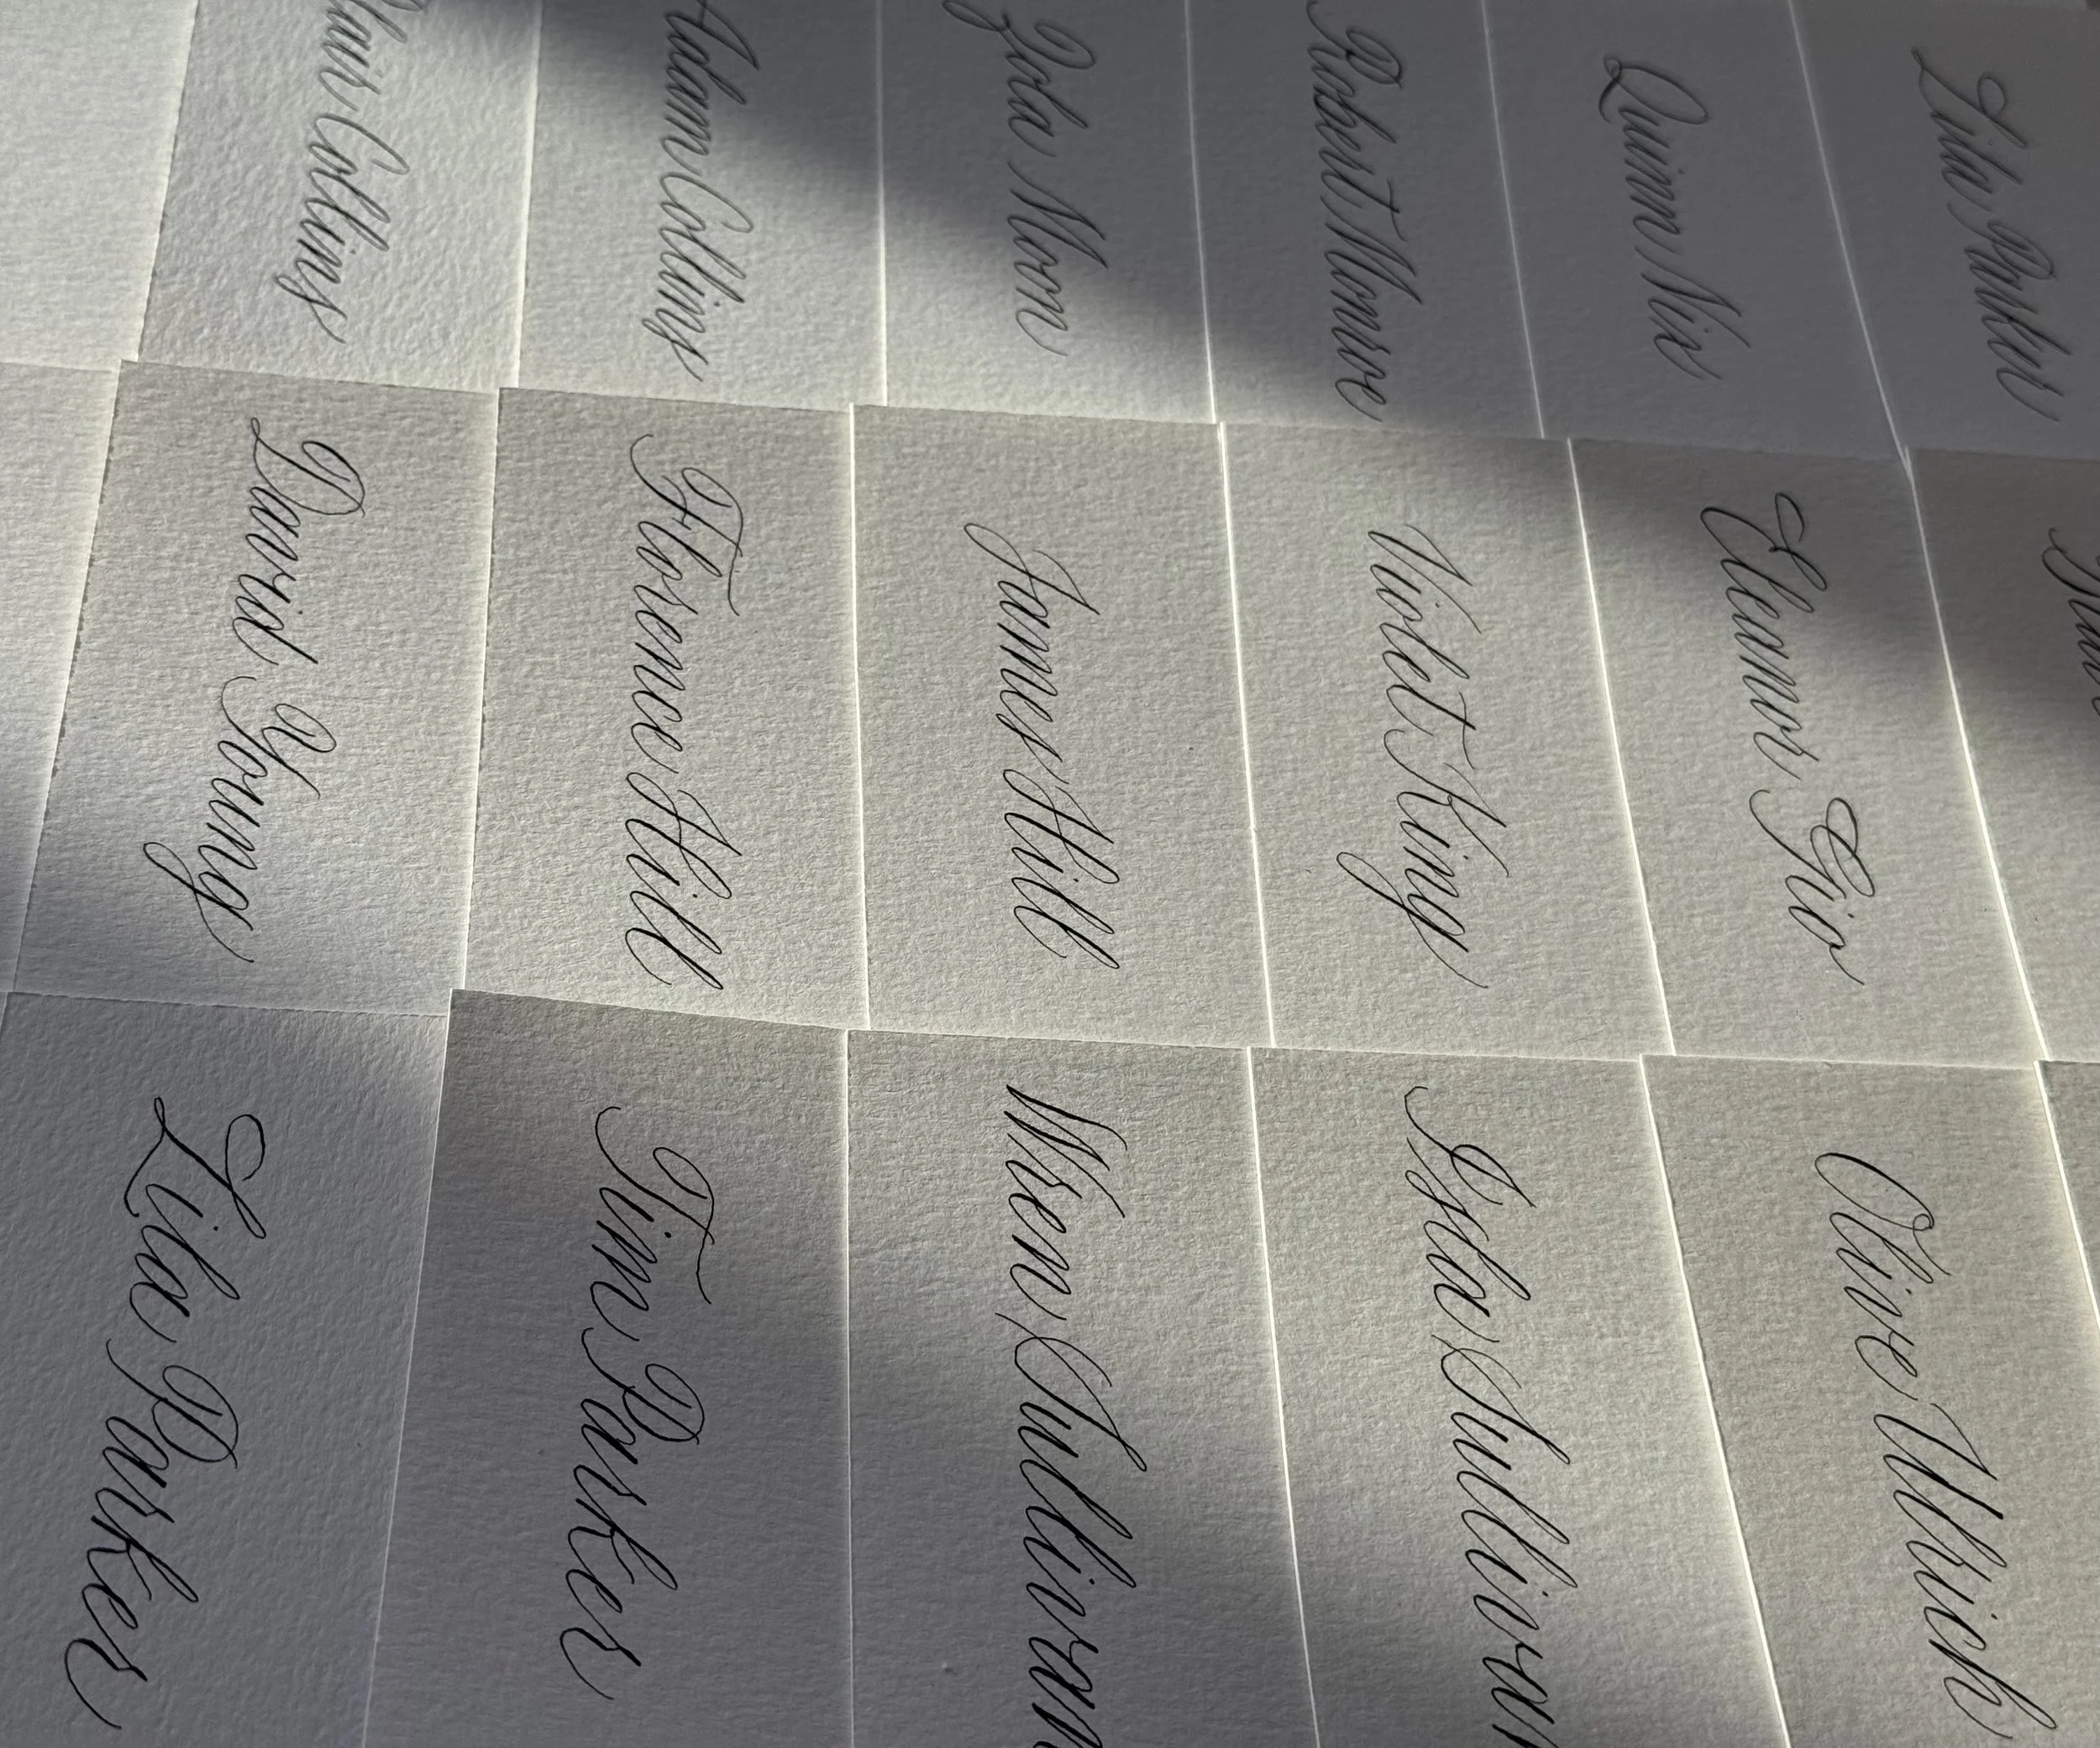 Blair Collins
Adam Collins
Zola Moon
Robert Monroe
Quinn Nix
Lila Parker
David Young
Florence Hill
James Hill
Violet King
Eleanor Gio
Lila Parker
Tim Parker
Wren Sullivan
Isla Sullivan
Olive Ulrich